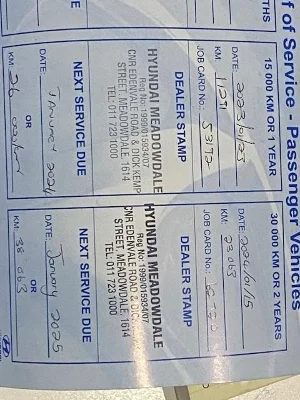 f of Service - Passenger Vehicles
THS
15 000 KM OR 1 YEAR
DATE: 2023/01/25
KM: 11291
JOB CARD No.: 53972
DEALER STAMP
HYUNDAI MEADOWDALE
Reg No: 1999/015934/07
CNR EDENVALE ROAD & DICK KEMP
STREET, MEADOWDALE, 1614
TEL: 011 723 1000
NEXT SERVICE DUE
DATE: January 2024
OR
KM: 26
30 000 KM OR 2 YEARS
DATE: 2024/01/15
KM: 23 063
JOB CARD No.:
DEALER STAMP
HYUNDAI MEADOWDALE
Reg No: 1999/015934/07
CNR EDENVALE ROAD &
STREET, MEADOWDALE, 1614
TEL: 011 723 1000
NEXT SERVICE DUE
DATE: January 2025
OR
KM: 38 063